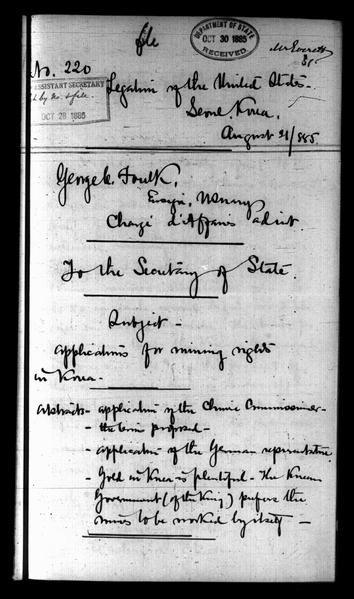 file
DEPARTMENT OF STATE
OCT 30 1885
RECEIVED
Mr Everett
No. 220
ASSISTANT SECRETARY
OCT 28 1885
Legation of the United States-
Seoul, Korea,
August 21/885.
George C. Foulk,
Ensign, U.S. Navy
Chargé d'Affaires ad int.
To the Secretary of State.
Subject-
applications for mining rights
in Korea-
Abstract- application of the Chinese Commissioner-
- the terms proposed-
- application of the German representative.
- Gold in Korea is plentiful- The Korean
Government (of the King) prefers the
mines to be worked by itself-